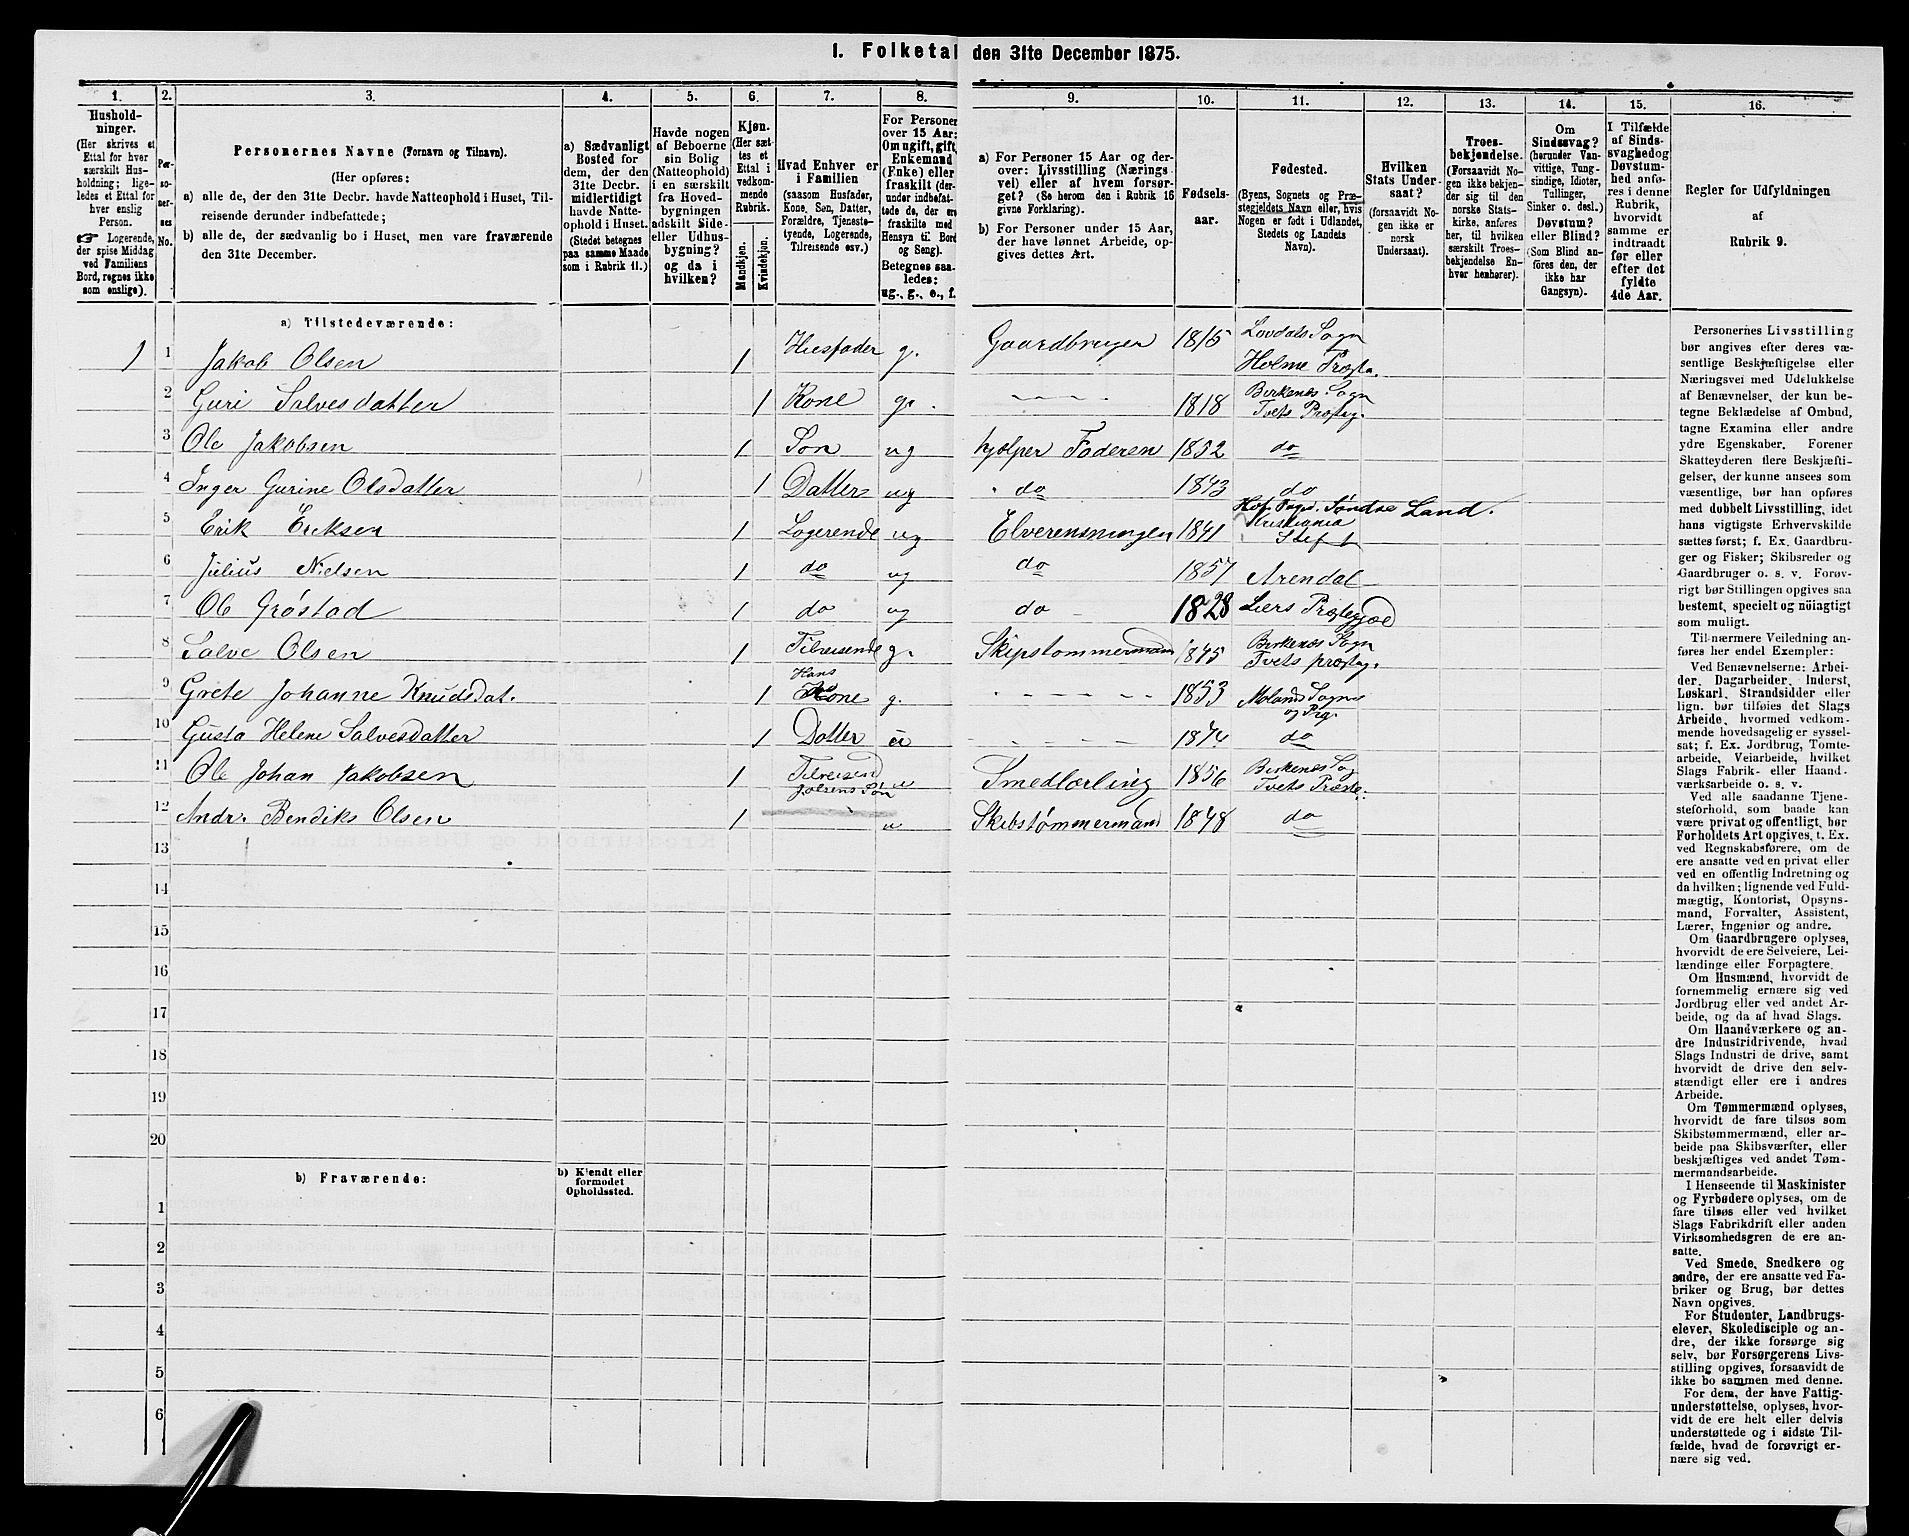 I. Folketal den 31te December 1875.
1. 2. 3. 4. 5. 6. 7. 8. 9. 10. 11. 12. 13. 14. 15. 16.
Hushold-
ninger.
(Her skrives et
Ettal for hver
særskilt Hus-
holdning; lige-
ledes et Ettal for
hver enslig
Person.
☞ Logerende,
der spise Middag
ved Familiens
Bord, regnes ikke
som enslige).
Per-
so-
ner-
nes
No.
Personernes Navne (Fornavn og Tilnavn).
(Her opføres:
a) alle de, der den 31te Decbr. havde Natteophold i Huset, Til-
reisende derunder indbefattede;
b) alle de, der sædvanlig bo i Huset, men vare fraværende
den 31te December.
a) Sædvanligt
Bosted for
dem, der den
31te Decbr.
midlertidigt
havde Natte-
ophold i Huset.
(Stedet betegnes
paa samme Maade
som i Rubrik 11.)
Havde nogen
af Beboerne
sin Bolig
(Natteophold)
i en særskilt
fra Hoved-
bygningen
adskilt Side-
eller Udhus-
bygning?
og da i
hvilken?
Kjøn.
(Her sæt-
tes et
Ettal i
vedkom-
mende
Rubrik.
Mandkjøn.
Kvindekjøn.
Hvad Enhver er
i Familien
(saasom Husfader,
Kone, Søn, Datter,
Forældre, Tjeneste-
tyende, Logerende,
Tilreisende osv.)
For Personer
over 15 Aar:
Om ugift, gift,
Enkemand
(Enke) eller
fraskilt (der-
under indbefat-
tede de, der ere
fraskilte med
Hensyn til Bord
og Seng).
Betegnes saa-
ledes:
ug., g., e., f.
a) For Personer 15 Aar og der-
over: Livsstilling (Nærings-
vei) eller af hvem forsør-
get? (Se herom den i Rubrik 16
givne Forklaring).
b) For Personer under 15 Aar,
der have lønnet Arbeide, op-
gives dettes Art.
Fødsels-
aar.
Fødested.
(Byens, Sognets og Præ-
stegjeldets Navn eller, hvis
Nogen er født i Udlandet,
Stedets og Landets
Navn).
Hvilken
Stats Under-
saat?
(forsaavidt No-
gen ikke er
norsk
Undersaat).
Troes-
bekjendelse.
(Forsaavidt No-
gen ikke bekjen-
der sig til den
norske Stats-
kirke, anføres
her, til hvilken
særskilt Troes-
bekjendelse En-
hver henhører).
Om
Sindssvag?
(herunder Van-
vittige, Tung-
sindige, Idioter,
Tullinger,
Sinker o. desl.)
Døvstum?
eller Blind?
(Som Blind an-
føres den, der
ikke har
Gangsyn).
I Tilfælde
af Sinds-
svaghed og
Døvstum-
hed anfø-
res i denne
Rubrik,
hvorvidt
samme er
indtraadt
før eller
efter det
fyldte
4de Aar.
Regler for Udfyldningen
af
Rubrik 9.
a) Tilstedeværende:
1 1 Jakob Olsen 1 Husfader g. Gaardbruger 1815 Lovdals Sogn
Holme Præsta.
2 Guri Salvesdatter 1 Kone g. 1818 Birkenes Sogn
Tvets Præstg.
3 Ole Jakobsen 1 Søn ug hjælper Faderen 1852 do
4 Inger Gurine Olsdatter 1 Datter ug do 1843 do
5 Erik Eriksen 1 Logerende ug Elverensningen 1841 Hof Sogn. Søndre Land.
Kristiania
Stift
6 Julius Nielsen 1 do ug do 1857 Arendal
7 Ole Grøstad 1 do ug do 1828 Liers Præstegjæld
8 Salve Olsen 1 Tilreisende g. Skipstømmermand 1845 Birkenes Sogn
Tvets præstg.
9 Grete Johanne Knudsdat. 1 Hans
Kone g. 1853 Molands Sogn
og Prg.
10 Gusta Helene Salvesdatter 1 Datter u 1874 do
11 Ole Johan Jakobsen 1 Tilreisend
J. Olsens Søn u Smedlærling 1856 Birkenes Sog
Tvets Præste.
12 Andr. Bendiks Olsen 1 u Skibstømmermand 1848 do
13
14
15
16
17
18
19
20
b) Fraværende:
b) Kjendt eller
formodet
Opholdssted.
1
2
3
4
5
6
Personernes Livsstilling
bør angives efter deres væ-
sentlige Beskjæftigelse eller
Næringsvei med Udelukkelse
af Benævnelser, der kun be-
tegne Beklædelse af Ombud,
tagne Examina eller andre
ydre Egenskaber. Forener
Skatteyderen flere Beskjæfti-
gelser, der kunne ansees som
væsentlige, bør han opføres
med dobbelt Livsstilling, idet
hans vigtigste Erhvervskilde
sættes først; f. Ex. Gaardbru-
ger og Fisker; Skibsreder og
Gaardbruger o. s. v. Forøv-
rigt bør Stillingen opgives saa
bestemt, specielt og nøiagtigt
som muligt.
Til nærmere Veiledning an-
føres her endel Exempler:
Ved Benævnelserne: Arbei-
der, Dagarbeider, Inderst,
Løskarl, Strandsidder eller
lign. bør tilføies det Slags
Arbeide, hvormed vedkom-
mende hovedsagelig er syssel-
sat; f. Ex. Jordbrug, Tomte-
arbeide, Veiarbeide, hvilket
Slags Fabrik- eller Haand-
værksarbeide o. s. v.
Ved alle saadanne Tjene-
steforhold, som baade kan
være privat og offentligt, bør
Forholdets Art opgives, t. Ex.
ved Regnskabsførere, om de
ere ansatte ved en privat eller
ved en offentlig Indretning og
da hvilken; lignende ved Fuld-
mægtig, Kontorist, Opsyns-
mand, Forvalter, Assistent,
Lærer, Ingeniør og andre.
Om Gaardbrugere oplyses,
hvorvidt de ere Selveiere, Lei-
lændinge eller Forpagtere.
Om Husmænd, hvorvidt de
fornemmelig ernære sig ved
Jordbrug eller ved andet Ar-
beide, og da af hvad Slags.
Om Haandværkere og an-
dre Industridrivende, hvad
Slags Industri de drive, samt
hvorvidt de drive den selv-
stændigt eller ere i andres
Arbeide.
Om Tømmermænd oplyses,
hvorvidt de fare tilsøs som
Skibstømmermænd, eller ar-
beide paa Skibsværfter, eller
beskjæftiges ved andet Tøm-
mermandsarbeide.
I Henseende til Maskinister
og Fyrbødere oplyses, om de
fare tilsøs eller ved hvilket
Slags Fabrikdrift eller anden
Virksomhedsgren de ere an-
satte.
Ved Smede, Snedkere og
andre, der ere ansatte ved Fa-
briker og Brug, bør dettes
Navn opgives.
For Studenter, Landbrugs-
elever, Skoledisciple og an-
dre, der ikke forsørge sig
selv, bør Forsørgerens Livs-
stilling opgives, forsaavidt de
ikke bo sammen med denne.
For dem, der have Fattig-
understøttelse, oplyses, hvor-
vidt de ere helt eller delvis
understøttede og i sidste Til-
fælde, hvad de forøvrigt er-
nære sig ved.